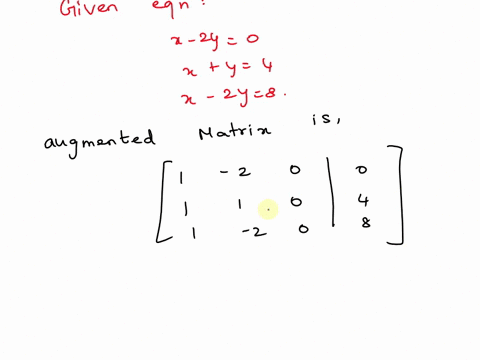 Given eqn:
x - 2y = 0
x + y = 4
x - 2y = 8.
augmented Matrix is,
1 -2 0 | 0
1 1 0 | 4
1 -2 0 | 8